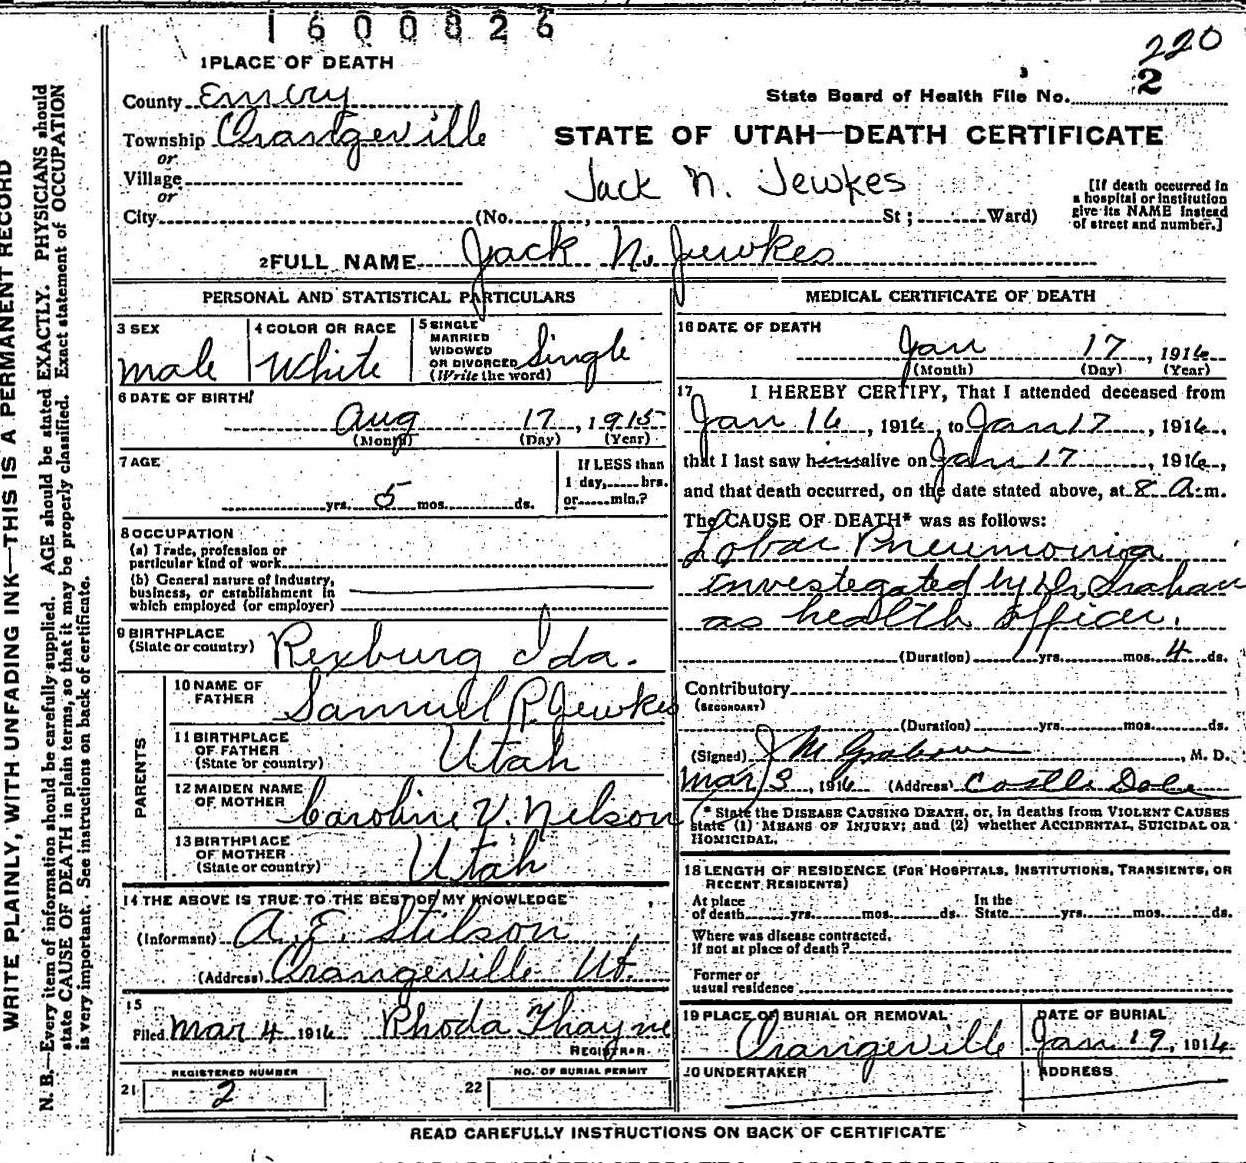 1600826
220
1 PLACE OF DEATH
County Emery
State Board of Health File No. 2
Township Orangeville
STATE OF UTAH—DEATH CERTIFICATE
or
Village
Jack N. Jewkes
or
City (No. , St ; Ward)
[If death occurred in
a hospital or institution
give its NAME instead
of street and number.]
2 FULL NAME Jack N. Jewkes
PERSONAL AND STATISTICAL PARTICULARS
3 SEX
male
4 COLOR OR RACE
White
5 SINGLE
MARRIED
WIDOWED
OR DIVORCED Single
(Write the word)
6 DATE OF BIRTH
Aug 17, 1915
(Month) (Day) (Year)
7 AGE
yrs. 5 mos. ds.
If LESS than
1 day, hrs.
or min.?
8 OCCUPATION
(a) Trade, profession or
particular kind of work
(b) General nature of industry,
business, or establishment in
which employed (or employer)
9 BIRTHPLACE
(State or country) Rexburg Ida.
PARENTS
10 NAME OF
FATHER Samuel P. Jewkes
11 BIRTHPLACE
OF FATHER
(State or country) Utah
12 MAIDEN NAME
OF MOTHER Caroline V. Nelson
13 BIRTHPLACE
OF MOTHER
(State or country) Utah
14 THE ABOVE IS TRUE TO THE BEST OF MY KNOWLEDGE
(Informant) A. E. Stilson
(Address) Orangeville Ut.
15
Filed Mar 4 1916 Rhoda Thayne
REGISTRAR.
REGISTERED NUMBER
21 2
NO. OF BURIAL PERMIT
22
MEDICAL CERTIFICATE OF DEATH
16 DATE OF DEATH
Jan 17, 1916
(Month) (Day) (Year)
17 I HEREBY CERTIFY, That I attended deceased from
Jan 16, 1916, to Jan 17, 1916,
that I last saw him alive on Jan 17, 1916,
and that death occurred, on the date stated above, at 8 A.m.
The CAUSE OF DEATH* was as follows:
Lobar Pneumonia
investegated by Dr Graham
as health officer.
(Duration) yrs. mos. 4 ds.
Contributory
(SECONDARY)
(Duration) yrs. mos. ds.
(Signed) J M Graham, M. D.
Mar 3, 1916 (Address) Castle Dale
* State the DISEASE CAUSING DEATH, or, in deaths from VIOLENT CAUSES
state (1) MEANS OF INJURY; and (2) whether ACCIDENTAL, SUICIDAL OR
HOMICIDAL.
18 LENGTH OF RESIDENCE (FOR HOSPITALS, INSTITUTIONS, TRANSIENTS, OR
RECENT RESIDENTS)
At place
of death yrs. mos. ds.
In the
State yrs. mos. ds.
Where was disease contracted,
If not at place of death?
Former or
usual residence
19 PLACE OF BURIAL OR REMOVAL
Orangeville
DATE OF BURIAL
Jan 19, 1916
20 UNDERTAKER
ADDRESS
READ CAREFULLY INSTRUCTIONS ON BACK OF CERTIFICATE
WRITE PLAINLY, WITH UNFADING INK—THIS IS A PERMANENT RECORD
N. B.—Every item of information should be carefully supplied. AGE should be stated EXACTLY. PHYSICIANS should
state CAUSE OF DEATH in plain terms, so that it may be properly classified. Exact statement of OCCUPATION
is very important. See instructions on back of certificate.